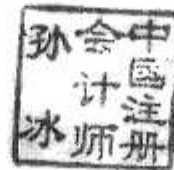 中国注册
会计师
孙冰